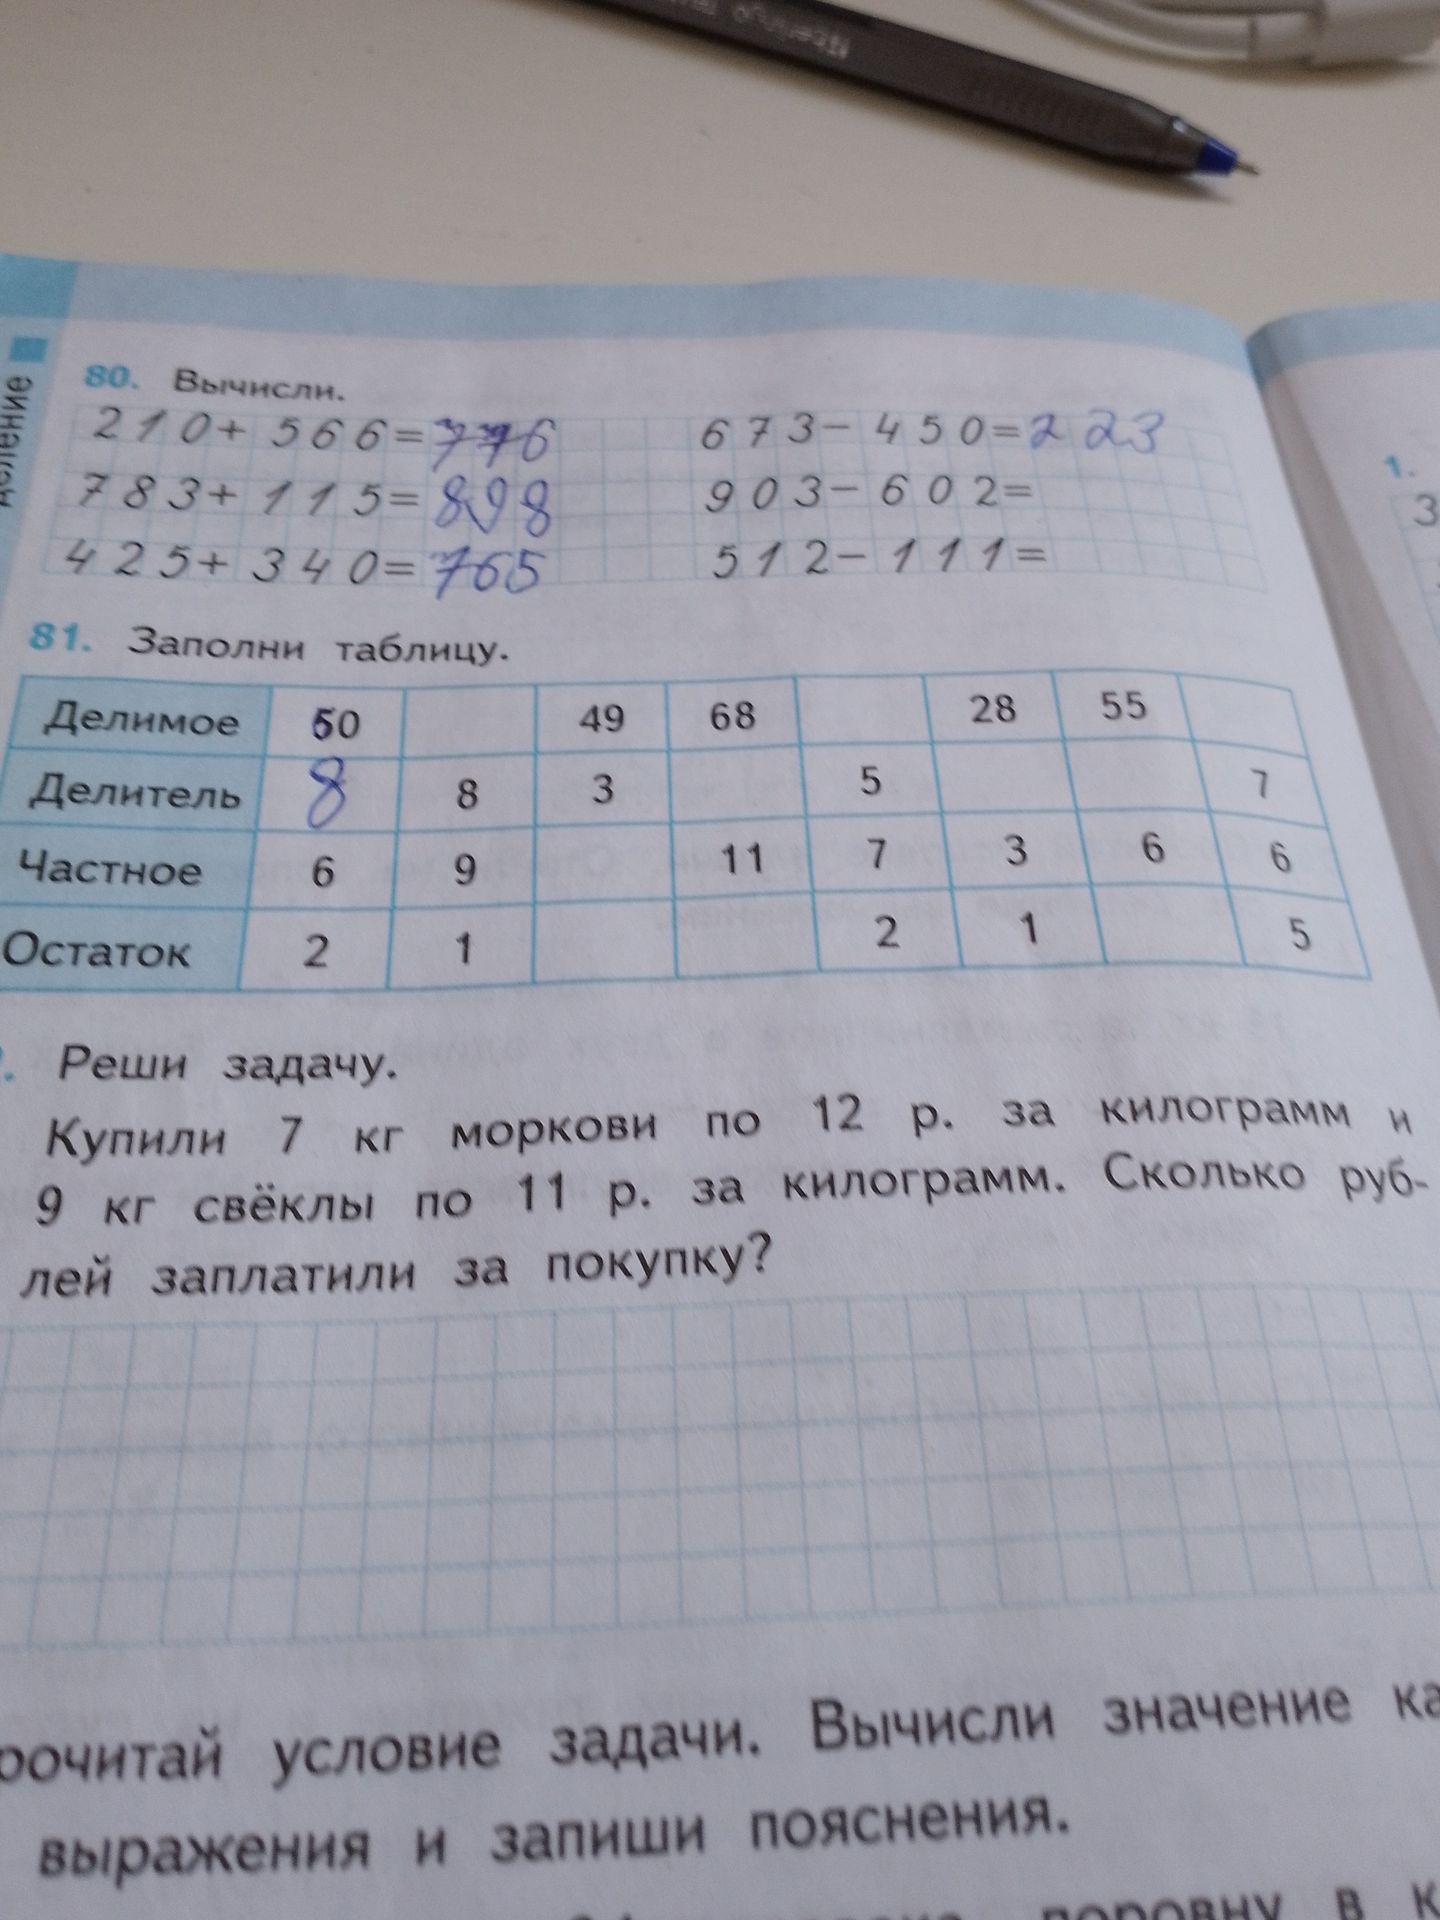 80. Вычисли.
210+566=776 673-450=223
783+115=898 903-602=
425+340=765 512-111=
81. Заполни таблицу.
Делимое 50 49 68 28 55
Делитель 8 8 3 5 7
Частное 6 9 11 7 3 6 6
Остаток 2 1 2 1 5
Реши задачу.
Купили 7 кг моркови по 12 р. за килограмм и
9 кг свёклы по 11 р. за килограмм. Сколько руб-
лей заплатили за покупку?
рочитай условие задачи. Вычисли значение ка
выражения и запиши пояснения.
поровну в к
1.
3